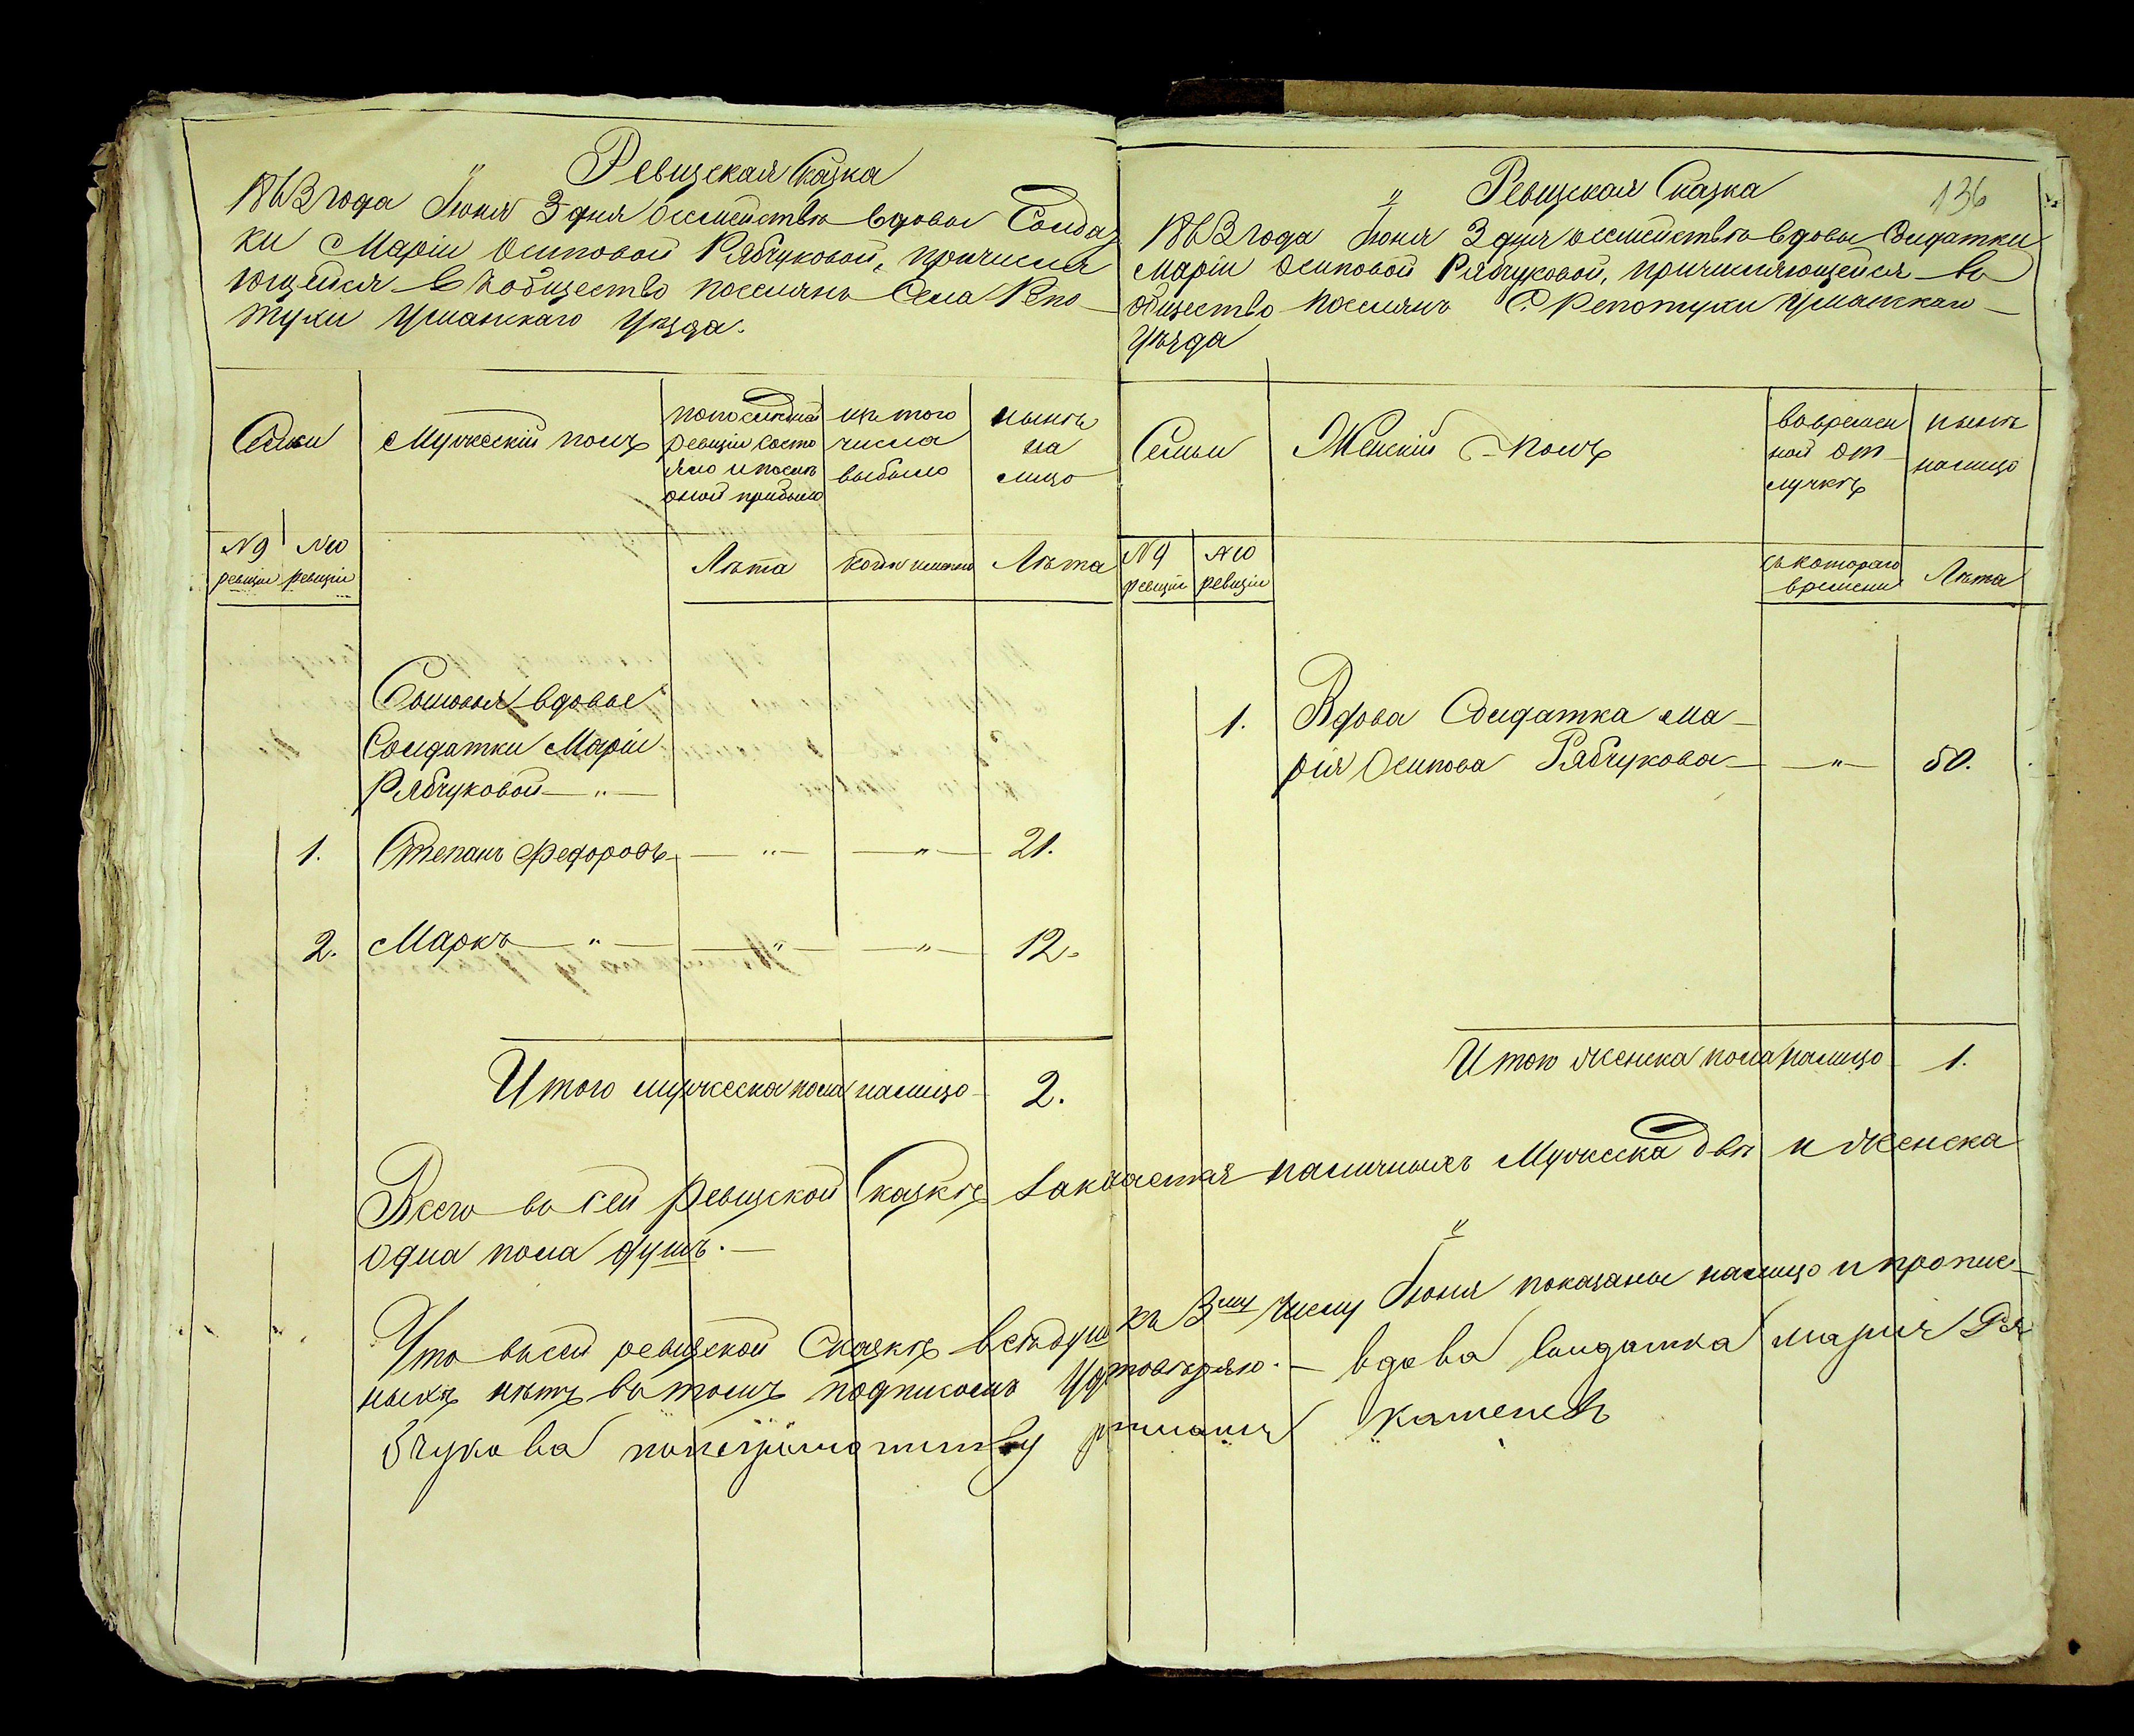 Ревизская Сказка
1863 года Іюня 3 дня о семействѣ вдовы Солдат
ки Маріи Осиповой Рябчуковой, причисля
ющейся въ общество поселянъ Села Репо
тухи Уманскаго Уѣзда.
Семьи
Мужескій полъ
по последней
ревизіи состо
яло и после
оной прибыло
изъ того
числа
выбыло
нынѣ
на
лицо
№ 9
ревизіи
№ 10
ревизіи
Лѣта
Когда именно
Лѣта
Сыновья вдовы
Солдатки Маріи
Рябчуковой — " —
1. Степанъ Федоровъ — " — — " — 21.
2. Маркъ — " — — " — — " — 12.
Итого мужеска пола налицо 2.
136
Ревизская Сказка
1863 года Іюня 3 дня о семействѣ вдовы Солдатки
Маріи Осиповой Рябчуковой, причисляющейся въ
общество поселянъ С. Репотухи Уманскаго
Уѣзда
Семьи
Женскій полъ
во времен
ной от
лучкѣ
нынѣ
налицо
№ 9
ревизіи
№ 10
ревизіи
съ котораго
времени
Лѣта
1. Вдова Солдатка Ма
рія Осипова Рябчукова — " — 50.
Итого женска пола налицо 1.
Всего въ сей ревизской сказкѣ заключается наличныхъ Мужеска двѣ и женска
одна пола душъ.
Что въ сей ревизской Сказкѣ всѣ души къ 3му числу Іюня показаны налицо и пропис
ныхъ нѣтъ въ томъ подписомъ удтовѣряю. — вдова солдатка мария Ря
бчукова